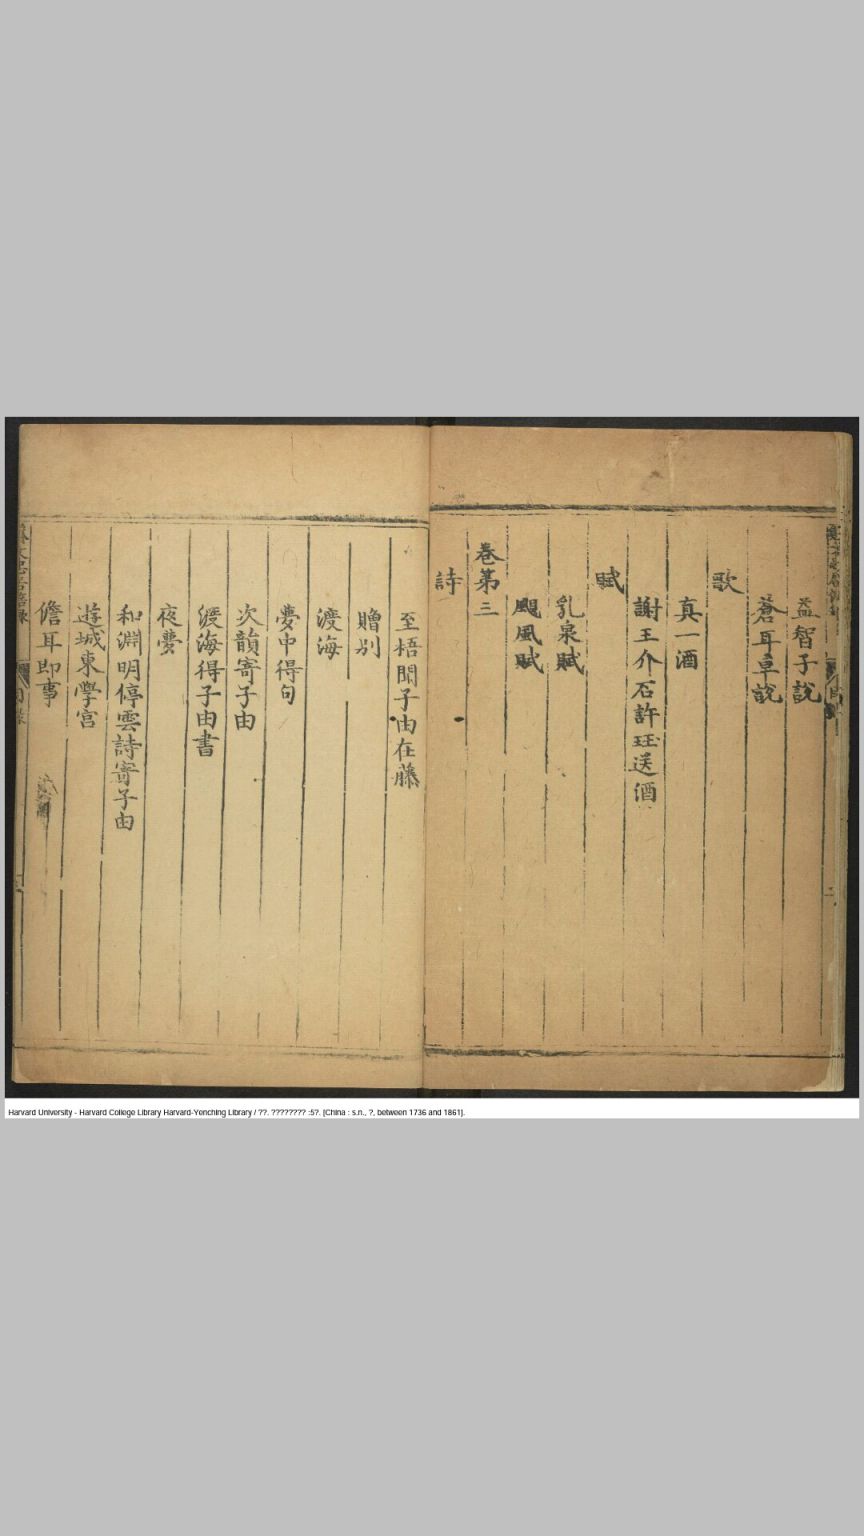 益智子說
蒼耳草說
歌
真一酒
謝王介石許珏送酒
賦
乳泉賦
颶風賦
卷第三
詩
至梧聞子由在藤
贈別
渡海
夢中得句
次韻寄子由
渡海得子由書
夜夢
和淵明停雲詩寄子由
遊城東學宮
儋耳即事
Harvard University - Harvard College Library Harvard-Yenching Library / ??. ???????? :5?. [China : s.n., ?, between 1736 and 1861].